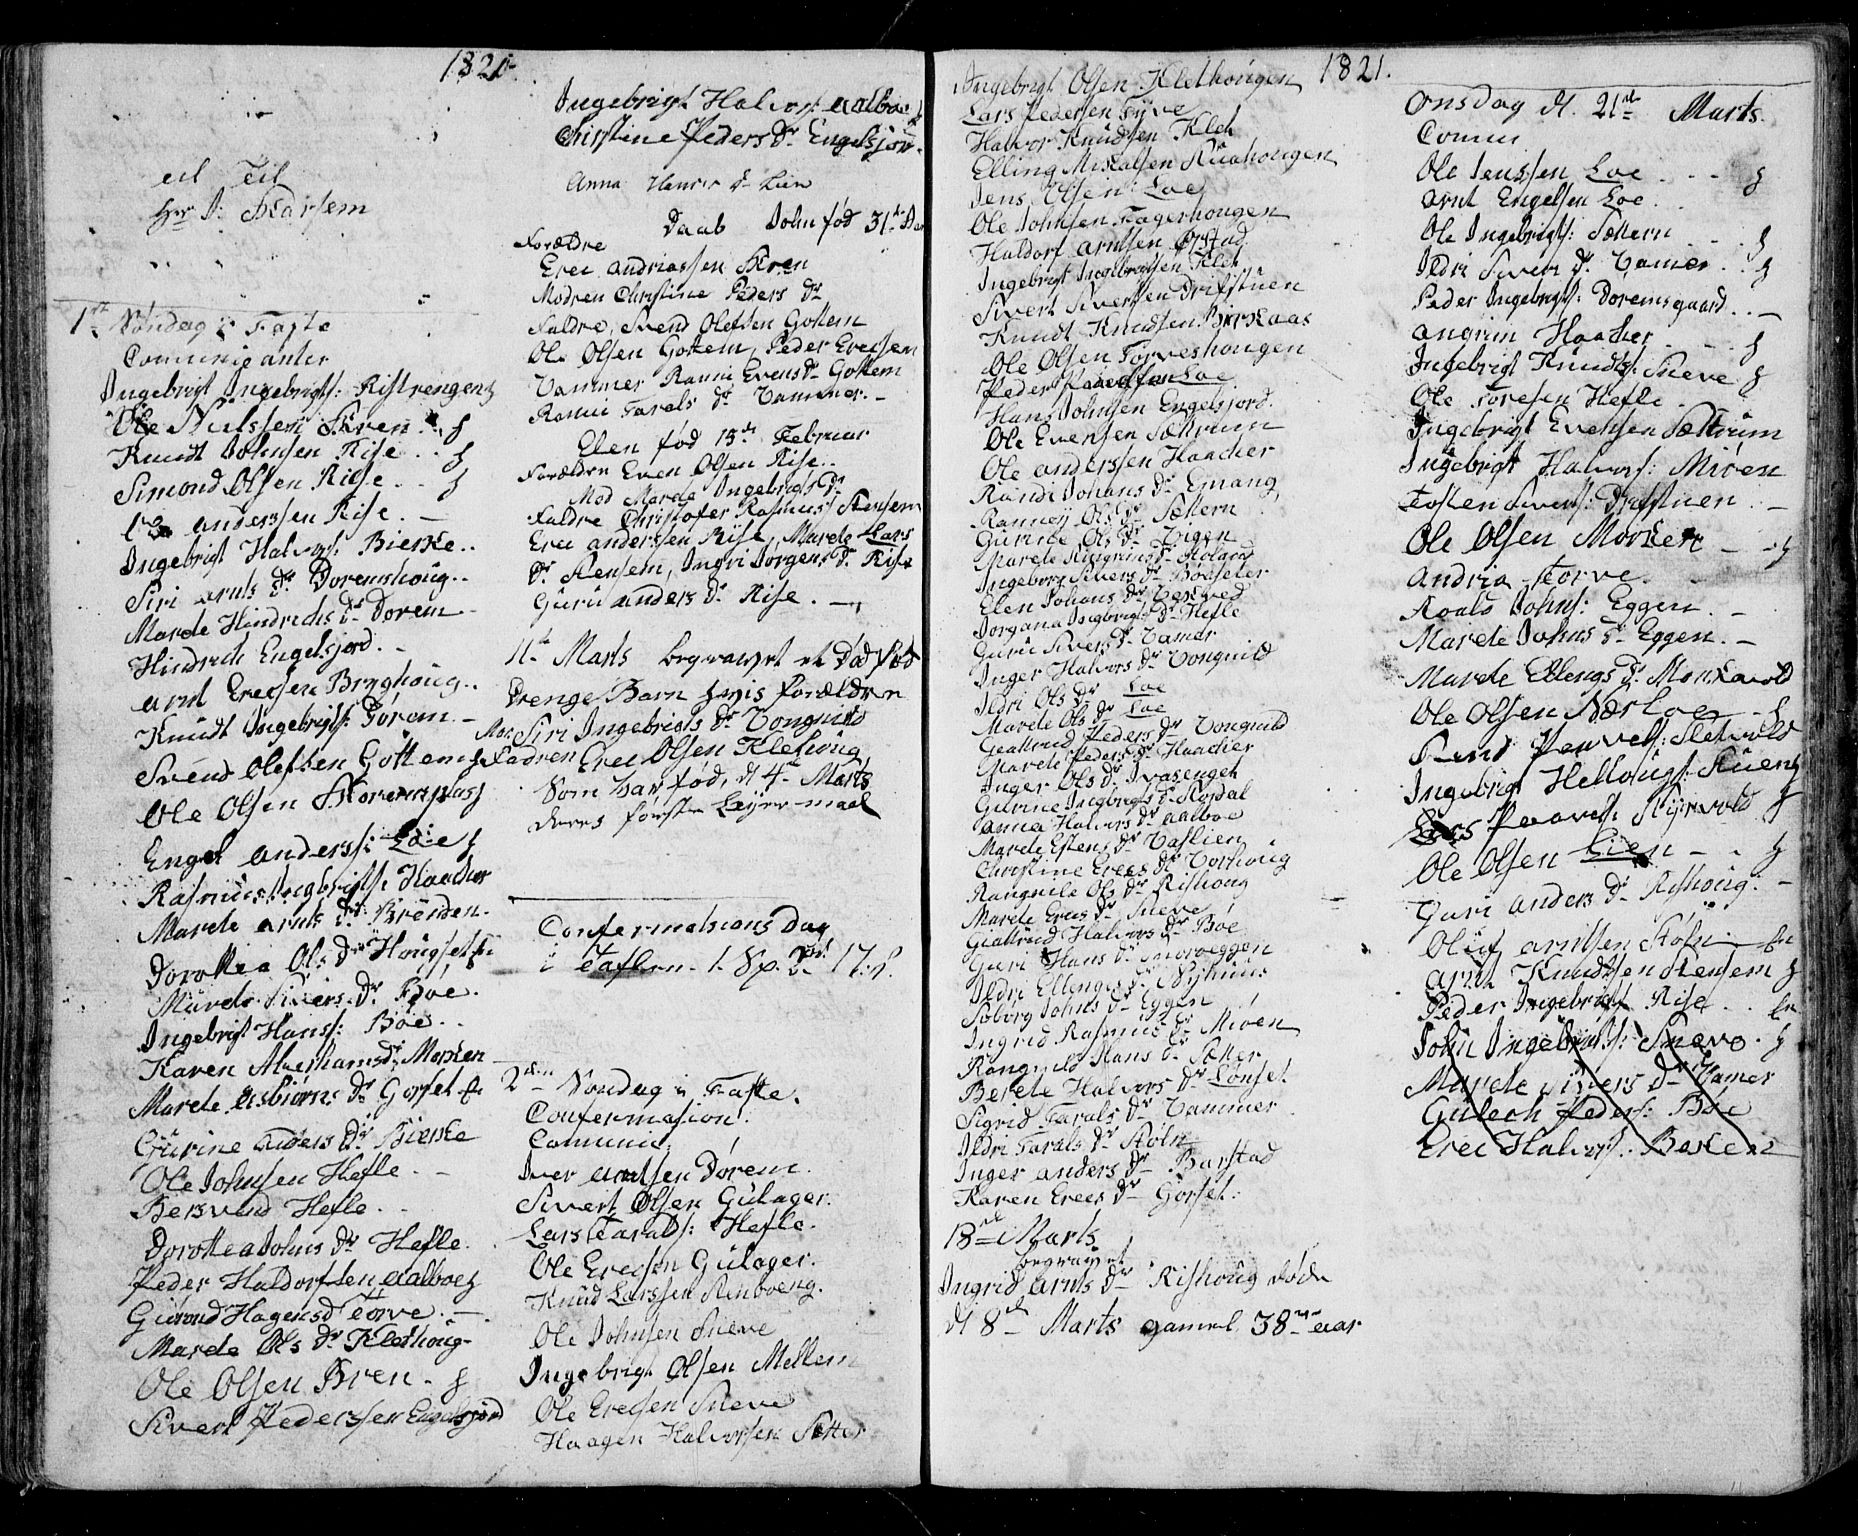 1821.
Til
Hr S: Skarsem
1ste Søndag i Faste
Comunicanter
Ingebrigt Ingebrigts: Ristrengen
Ole Nilssen Skren
Knudt Johnsen Rise
Simond Olsen Riise
anderssen Rise
Ingebrigt Halvors: Bierke
Siri arnts Dr Doremshoug
Marete Hindrichs Dr Dorem
Hindrich Engelsjord
arnt Erecsen Bryghoug
Knudt Ingebrigts: Gorem
Svend Olefsen Gottem
Ole Olsen Skoremplads
Engel anderss: Loe
Rasmus Ingbrigts: Haacker
Marete arnts Dr Brenden
Dorottea Ols Dr Hougset
Marete Sivers Dr Bøe
Ingebrigt Hanss: Bøe
Karen Abrahams Dr Morken
Marete Asbiørns Dr Gorset
Gurine anders Dr Bierke
Ole Johnsen Hefle
Bersvend Hefle
Dorottea Johns Dr Hefle
Peder Haldorsen aalboe
Gurond Hagens D Torve
Marete Ols Dr Klethoug
Ole Olsen Bren
Sivert Pederssen Engelsjord
Ingebrigt Halvors: aalboe
Christine Peders Dr Engelsjor
Anna Dr Lien
Daab John fød 31te
Forældre
Erec andriassen Skren
Modren Christine Peders Dr
Faldre, Svend Olefsen Gottem
Ole Olsen Gottem, Peder Erecsen
Vammer Ranni Evens Dr Gottem
Ranni Tarals Dr Vammer
Elen fød 15de Februar
Forældre Even Olsen Rise
Mod Marete Ingebrigts Dr
Faldre Christofer Rasmus: Stensem
Erec anderssen Rise, Marete Lars
Dr Stensem, Ingri Jorgens Dr Rise
Guru anders Dr Rise
11te Marts begravet et Dødfød
Drenge Barn hvis Forældre
Mor Siri Ingebrigts Dr Vongnild
Fadren Erec Olsen Klethoug
Som var fød, d 4de Marts
deres første Leyer-maal
Confermatsions Dag
i Taflen 1. Sp. 17:
2den Søndag i Faste
Confermasion
Comunic:
Iver arntsen Dorem
Sivert Olsen Gulager
Lars Tarals: Hefle
Ole Erecsen Gulager
Knud Larssen Stenboeng
Ole Johnsen Sneve
Ingebrigt Olsen Mellem
Ole Erecsen Sneve
Haagen Halvorsen Sætter
1821.
Ingebrigt Olsen Klethougen
Lars Pedersen Fyve
Halvor Knudsen Klet
Elling Mikalsen Ruahougen
Jens Olsen Loe
Ole Johnsen Fagerhougen
Haldorf arntsen Orstad
Ingebrigt Ingebrigtsen Klet
Sivert Sivertsen Drifstuen
Knudt Knudsen Birkaas
Ole Olsen Torveshougen
Peder Loe
Hans Johnsen Engelsjord
Ole Evensen Sættrum
Ole anderssen Haacker
Randi Johans Dr Gnang
Ranney Ols Dr Sættern
Gurine Ols Dr Vigen
Marete Ringrims Dr
Ingeborg Sivers Dr Bøeseter
Elen Johans Dr Vekved
Jorgana Ingbrigts Dr Hefle
Guru Sivers Dr Vamer
Inger Halvors Dr Vongnild
Ildri Ols Dr Loe
Marete Ols Dr Loe
Geattrud Peders Dr Vongnild
Marete Peders Dr Haacker
Inger Ols Dr Ivasenget
Gurine Ingbrigts Dr Rosdal
anna Halvors Dr aalboe
Marete Estens Dr Vaslien
Christine Erecs Dr Vorhoug
Rangnile Ols Dr Rishoug
Marete Erecs Dr Sneve
Geattrud Halvors Dr Bøe
Guri Hans Dr
Ildri Ellings Dr Nyhuus
Soborg Johns Dr Eggen
Ingrid Rasmus Dr Mioen
Rangnild Hans Dr Sætter
Berete Halvors Dr Lonset
Sigrid Tarals Dr Vammer
Ildri Tarals Dr Stoln
Inger anders Dr Barstad
Karen Erecs Dr Gorset
18de Marts
begravet
Ingrid arnts Dr Rishoug døde
d 8de Marts gamel 38 aar
Onsdag d. 21de Marts
Comun
Ole Jenssen Loe
arnt Engelsen Loe
Ole Ingebrigts: Sættern
Ildri Sivers Dr Vamer
Peder Ingebrigts: Doremsgaard
angrim Haacker
Ingebrigt Knudts: Sneve
Ole Toresen Hefle
Ingebrigt Evensen Sættrum
Ingebrigt Halvors: Mioen
Tosten Siverts: Drifstuen
Ole Olsen Morken
andria Torve
Roald Johns: Eggen
Marete Johns Dr Eggen
Marete Ellengs Dr Monkavold
Ole Olsen Nærloe
Svend Paavels: Sletvold
Ingebrigt Hellougs: Stuen
Lars Paavels: Styrvold
Ole Olsen Lien
Guri anders Dr Rishoug
Oluf arntsen
arnt Knudtsen Stensem
Peder Ingebrigt Rise
John Ingebrigts: Snevo
Marete Sivers Dr Vamer
Gulech Peders: Bøe
Erec Halvors: Beken